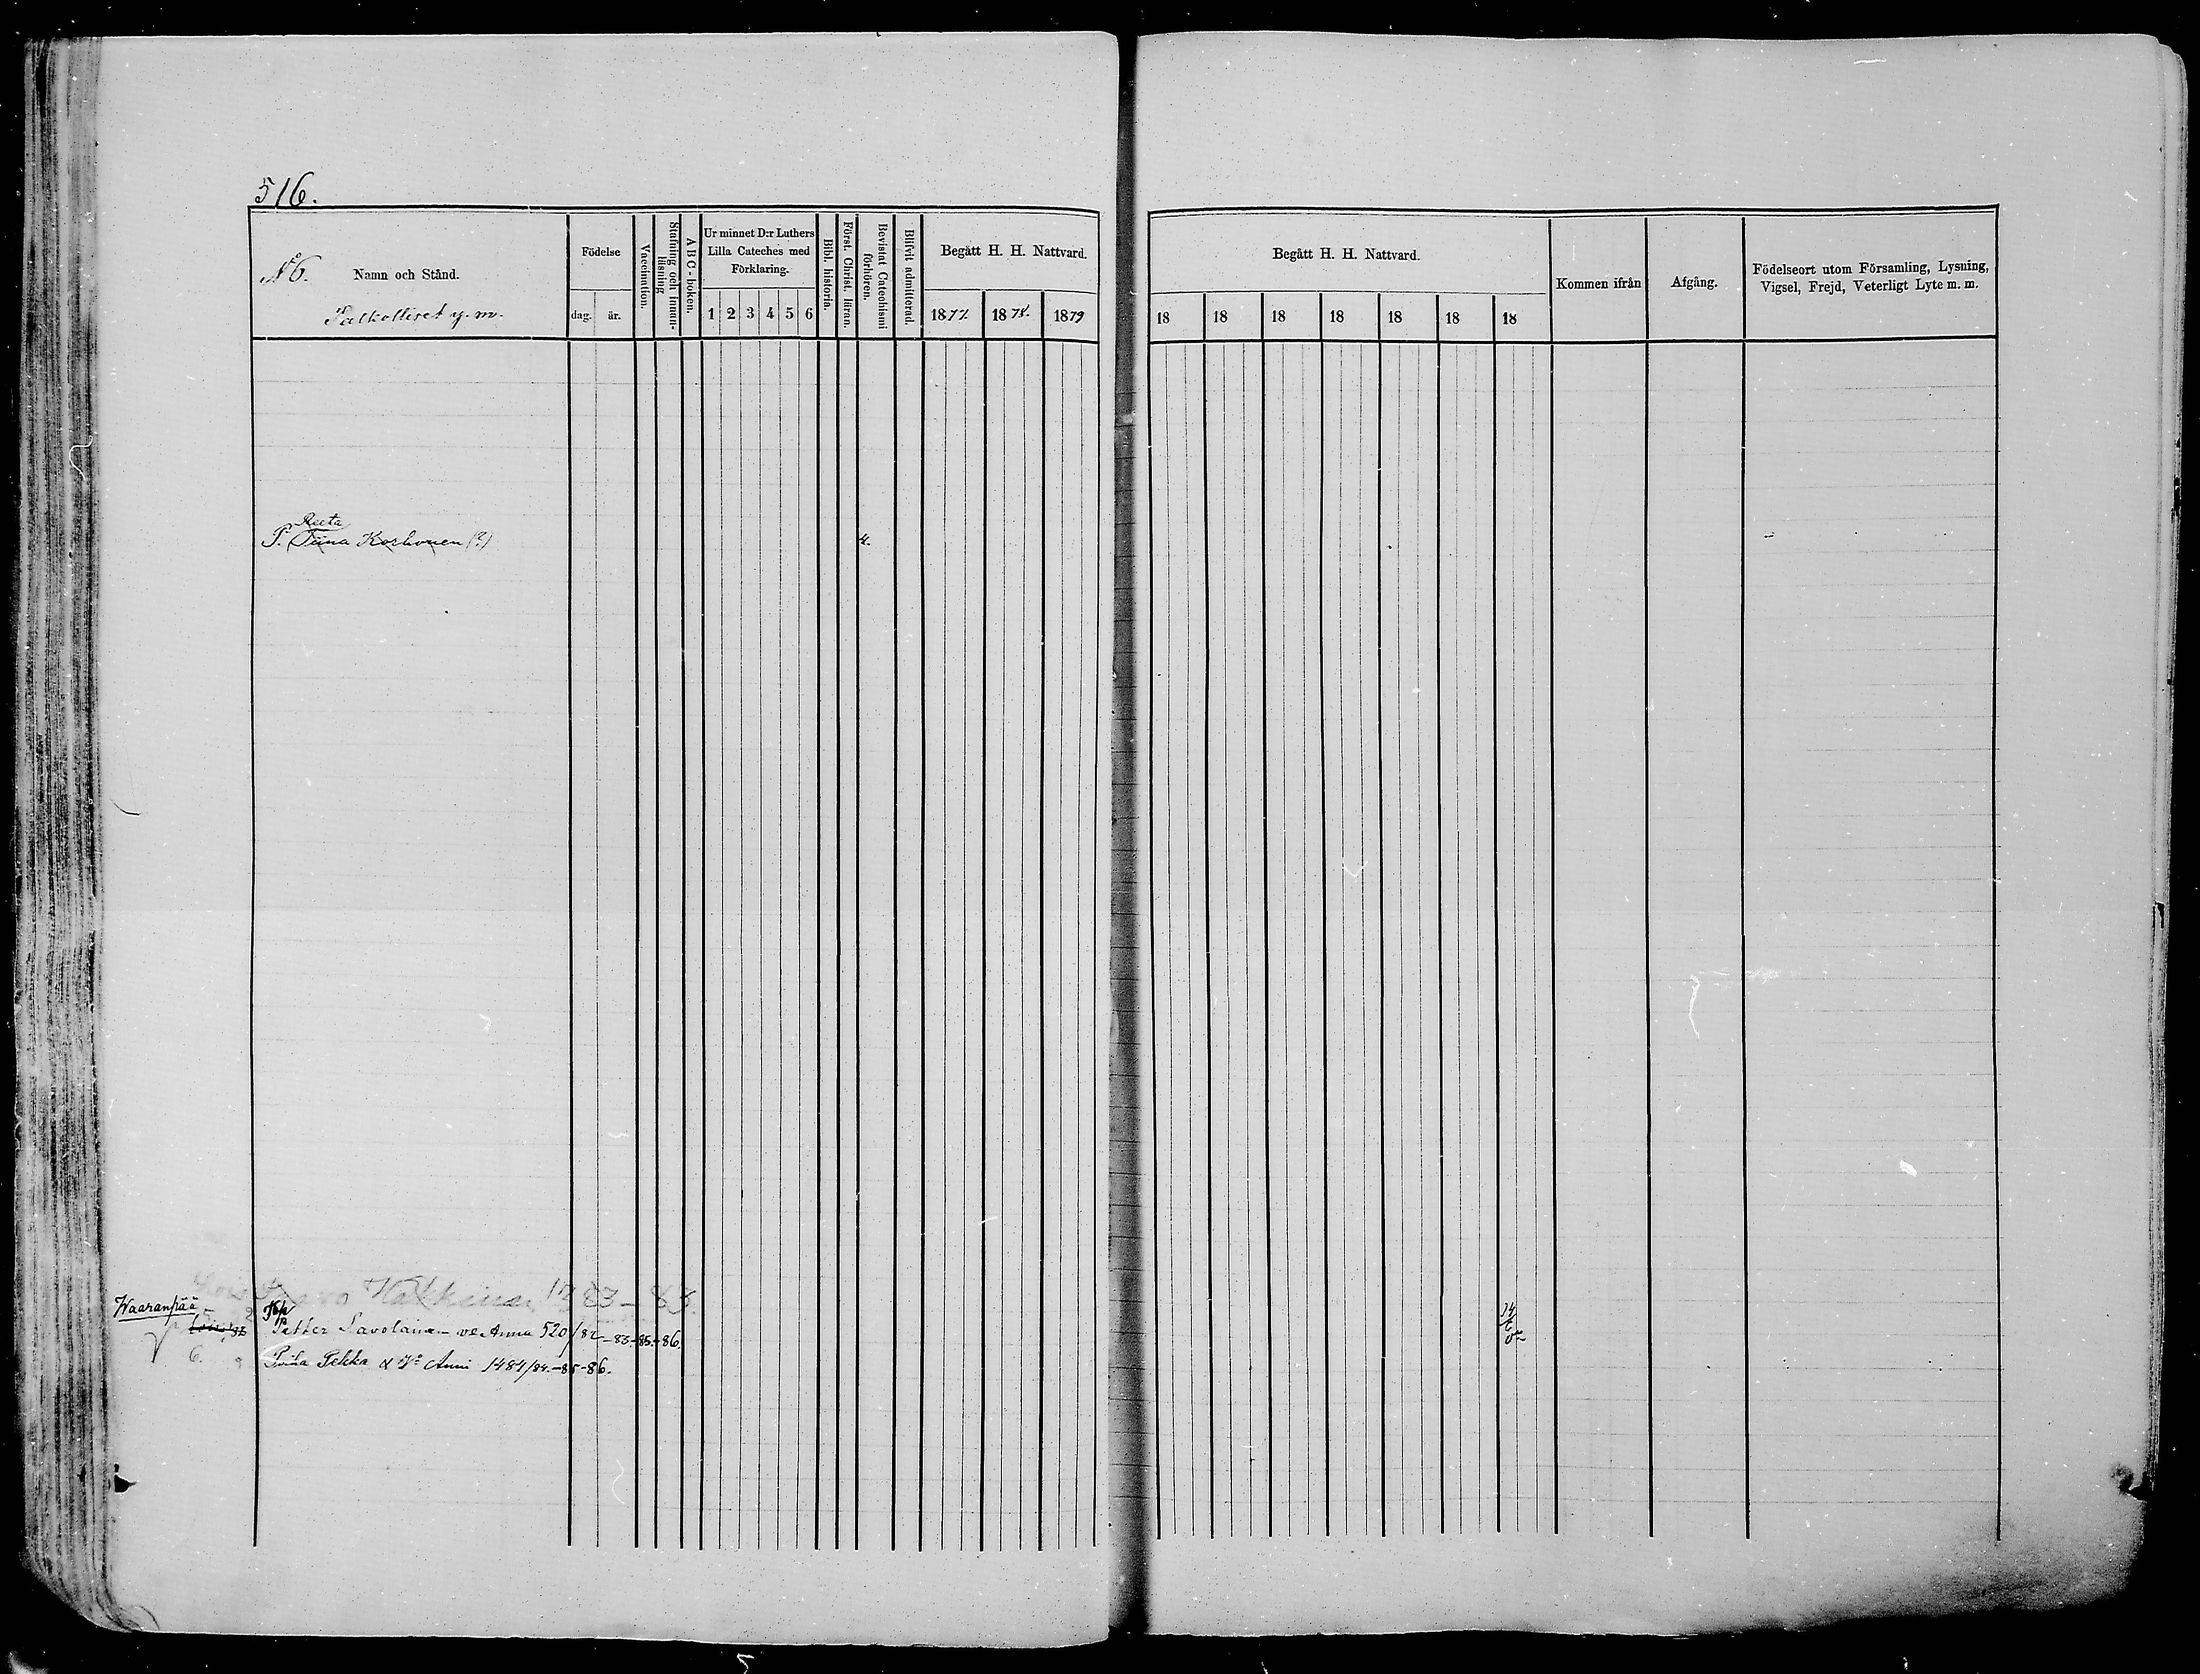 516.
N:o 6.
Namn och Stånd.
Palkolliset y. m.
Födelse
dag.
år.
Vaccination.
Stafning och innan-
läsning
ABC-boken.
Ur minnet D:r Luthers
Lilla Cateches med
Förklaring.
1 2 3 4 5 6
Bibl. historia.
Först. Christ. läran.
Bevistat Catechismi
förhören.
Blifvit admitterad.
Begått H. H. Nattvard.
1877. 1878. 1879
Begått H. H. Nattvard.
18 18 18 18 18 18 18
Kommen ifrån
Afgång.
Födelseort utom Församling, Lysning,
Vigsel, Frejd, Veterligt Lyte m. m.
Reeta
P. Tiina Korhonen (?)
4.
Hakkinen 1383–83.
Waaranpää
Petter Savolainen vo Anna 520/82–83–85–86.
6.
Pekka & Vo Anni 1484/84.–85–86.